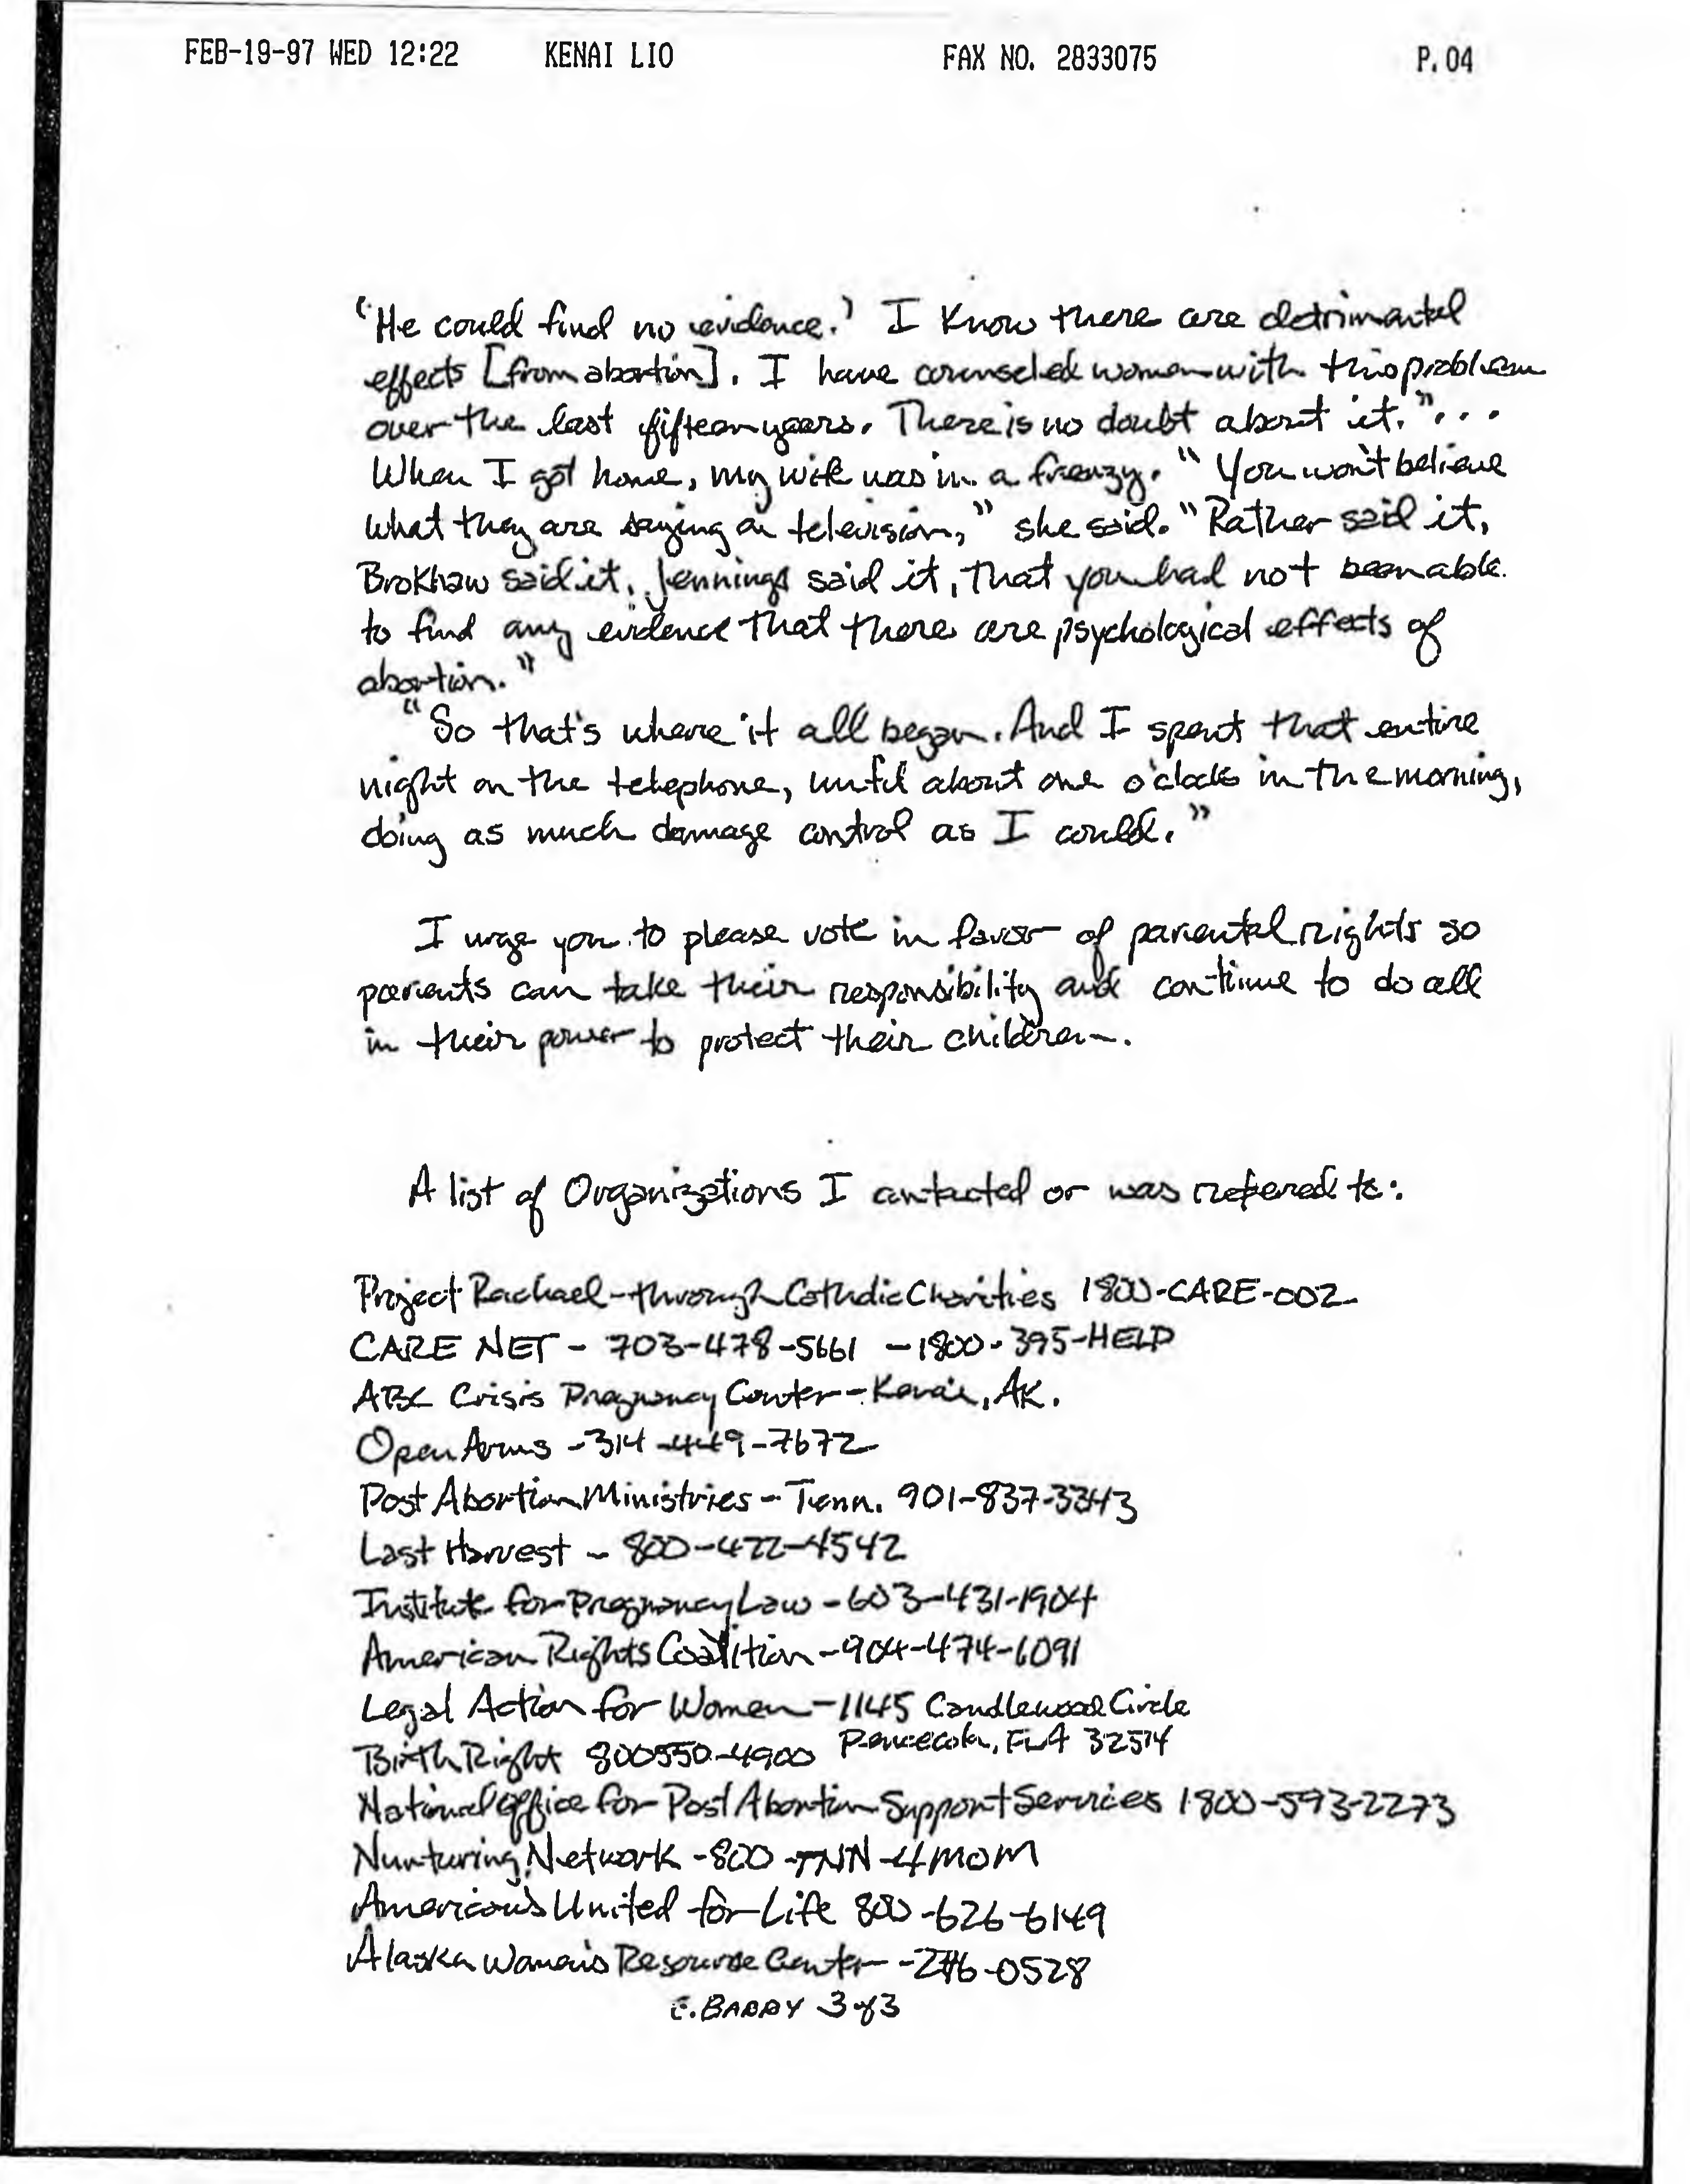 FEB-19-97 WED 12:22 KENAI LIO FAX NO. 2833075 P.04
'He could find no evidence.' I know there are detrimantel
effects [from abortion]. I have counseled women with this problem
over the last fifteen years. There is no doubt about it."...
When I got home, my wife was in a frenzy. "You won't believe
what they are saying on television," she said. "Rather said it,
Brokhaw said it, Jennings said it, that you had not been able
to find any evidence that there are psychological effects of
abortion."
"So that's where it all began. And I spent that entire
night on the telephone, until about one o'clock in the morning,
doing as much damage control as I could."
I urge you to please vote in favor of parental rights so
parents can take their responsibility and continue to do all
in their power to protect their children.
A list of Organizations I contacted or was refered to:
Project Rachael - through Catholic Charities 1800-CARE-002
CARE NET - 703-478-5661 - 1800-395-HELP
ABC Crisis Pregnancy Center - Kenai, AK.
Open Arms - 314-449-7672
Post Abortion Ministries - Tenn. 901-837-3343
Last Harvest - 800-422-4542
Institute for Pregnancy Law - 603-431-1904
American Rights Coalition - 904-474-1091
Legal Action for Women - 1145 Candlewood Circle
Pencecola, FLA 32514
Birth Right 800550-4900
National Office for Post Abortion Support Services 1800-593-2273
Nurturing Network - 800-TNN-4MOM
American's United for Life 800-626-6149
Alaska Women's Resource Center - 276-0528
C. BARRY 3 of 3